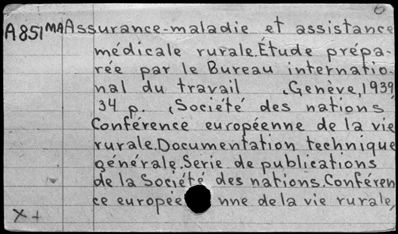 A851 MA Assurance-maladie et assistance
médicale rurale. Étude prépa-
rée par le Bureau internatio-
nal du travail , Genève, 1939
34 p. , Société des nations
Conférence européenne de la vie
rurale. Documentation technique
générale. Serie de publications
de la Société des nations. Conféren
ce europée nne de la vie rurale,
X +